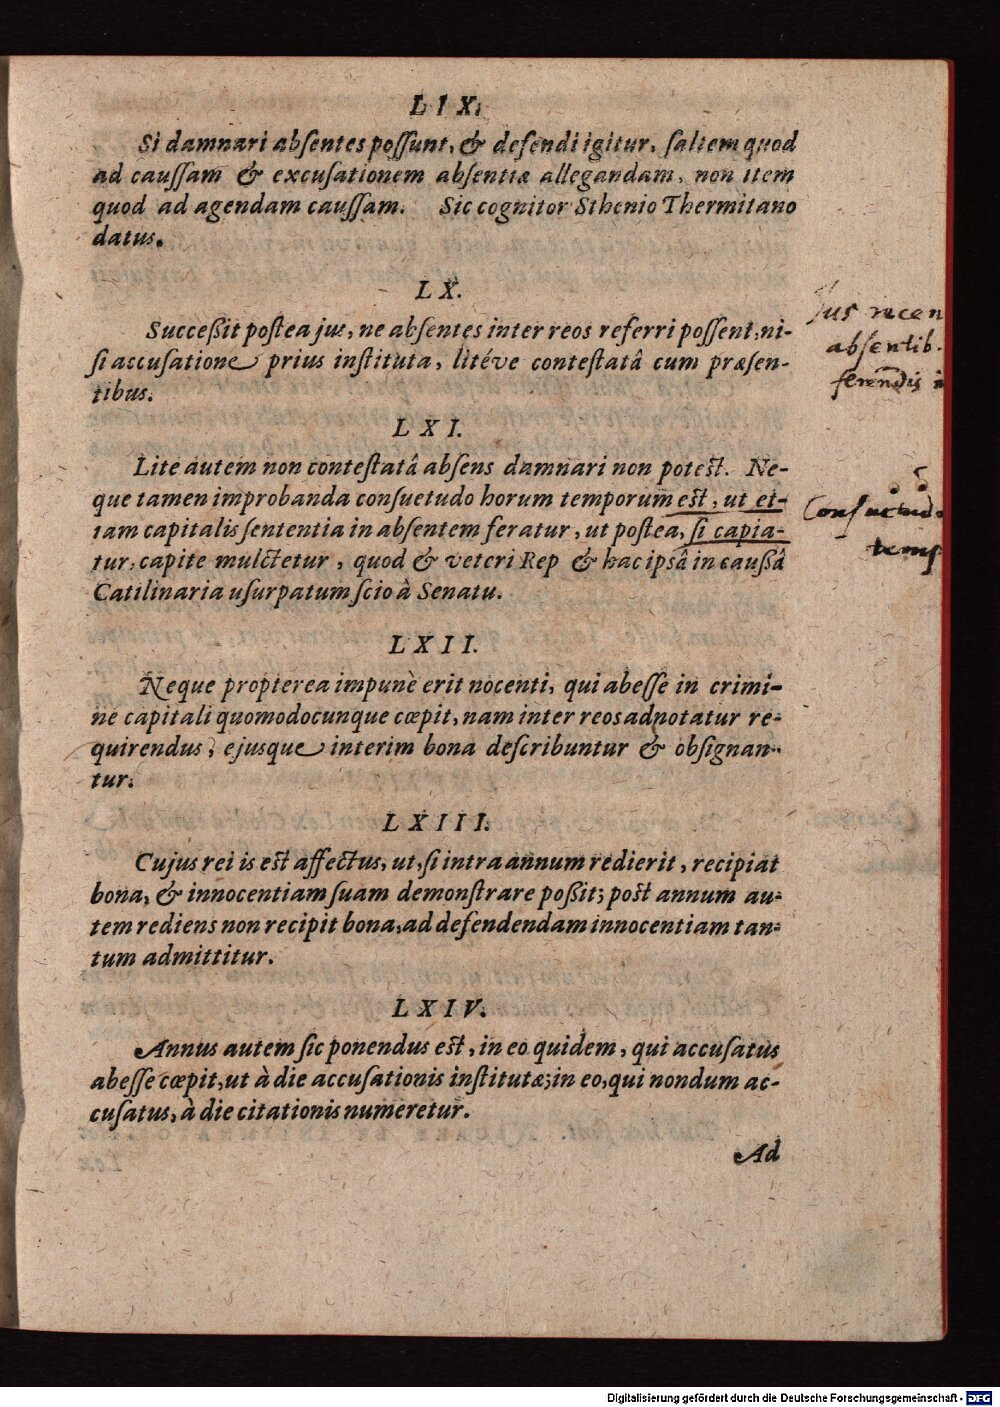 LIX.
Si damnari absentes possunt, & defendi igitur, saltem quod
ad caussam & excusationem absentiæ allegandam, non item
quod ad agendam caussam. Sic cognitor Sthenio Thermitano
datus.
LX.
Successit postea jus, ne absentes inter reos referri possent, ni-
si accusatione prius instituta, litéve contestatâ cum præsen-
tibus.
Jus recen
absentib.
ferendis i
LXI.
Lite autem non contestatâ absens damnari non potest. Ne-
que tamen improbanda consuetudo horum temporum est, ut et-
iam capitalis sententia in absentem feratur, ut postea, si capia-
tur, capite mulctetur, quod & veteri Rep & hac ipsâ in caussâ
Catilinaria usurpatum scio à Senatu.
Consuetudo
temp
LXII.
Neque propterea impunè erit nocenti, qui abesse in crimi-
ne capitali quomodocunque cœpit, nam inter reos adnotatur re-
quirendus, ejusque interim bona describuntur & obsignan-
tur.
LXIII.
Cujus rei is est affectus, ut, si intra annum redierit, recipiat
bona, & innocentiam suam demonstrare possit; post annum au-
tem rediens non recipit bona, ad defendendam innocentiam tan-
tum admittitur.
LXIV.
Annus autem sic ponendus est, in eo quidem, qui accusatus
abesse cœpit, ut à die accusationis institutæ; in eo, qui nondum ac-
cusatus, à die citationis numeretur.
Ad
Digitalisierung gefördert durch die Deutsche Forschungsgemeinschaft - DFG